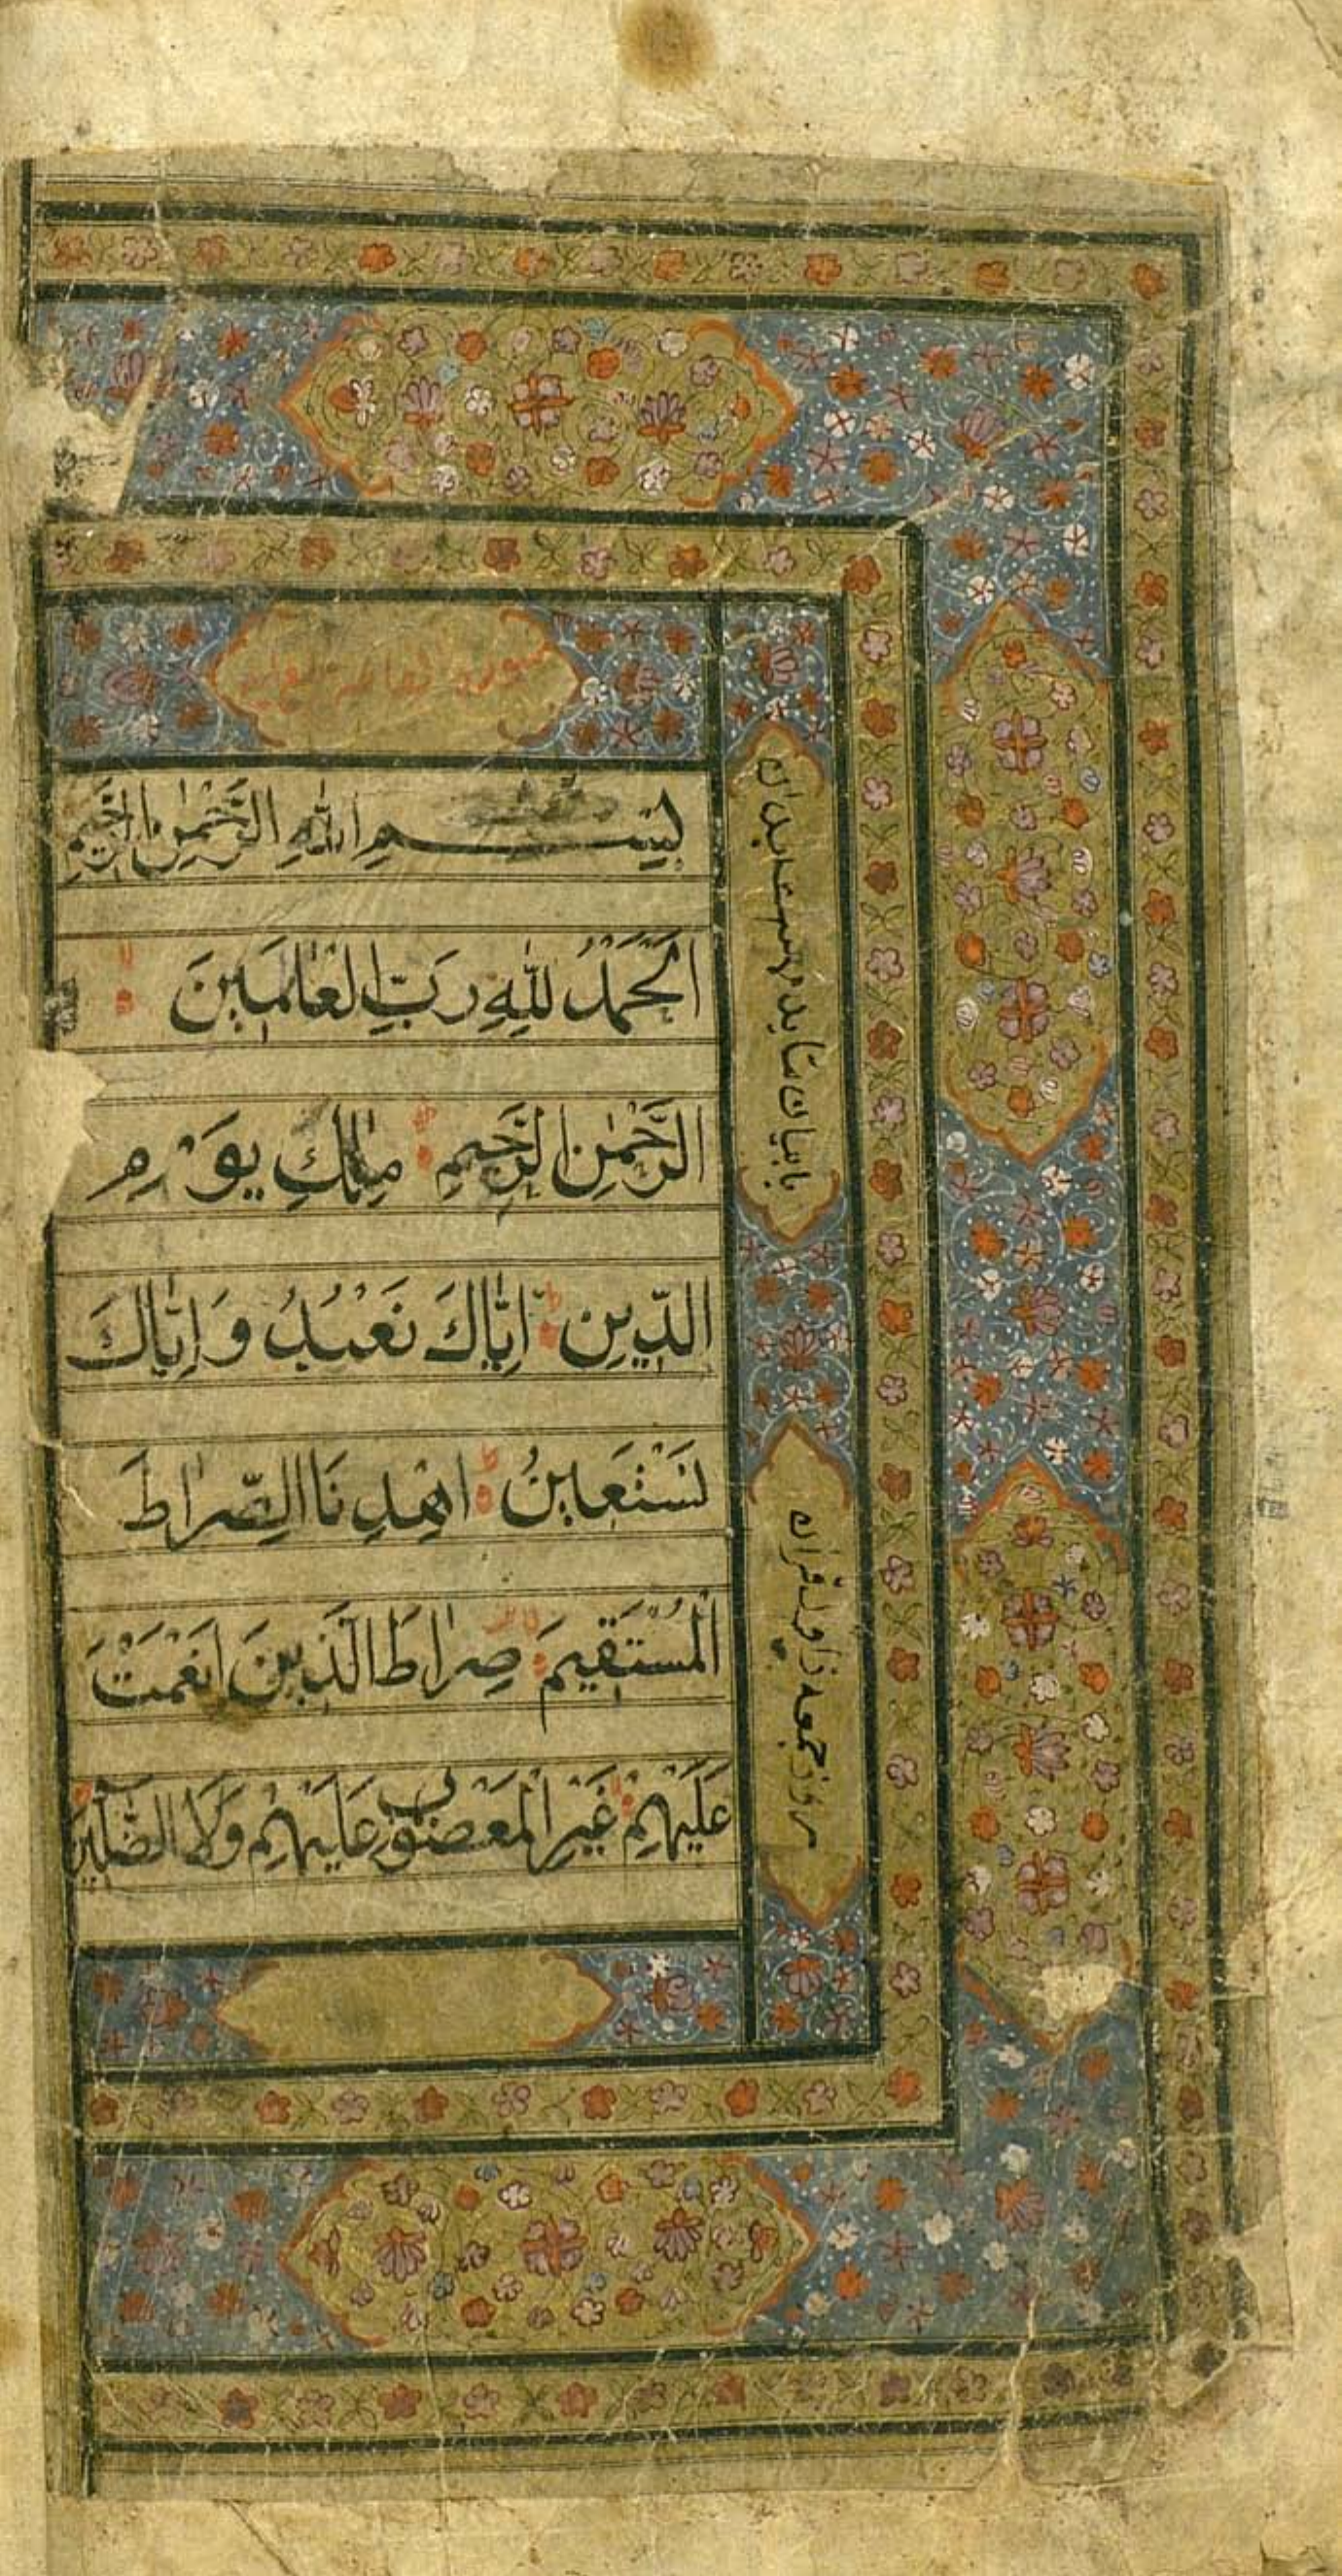 سورة
بِسْمِ اللّٰهِ الرَّحْمٰنِ الرَّحِيمِ
اَلْحَمْدُ لِلّٰهِ رَبِّ الْعٰالَمِينَ
الرَّحْمٰنِ الرَّحِيمِ مٰلِكِ يَوْمِ
الدِّينِ اِيّٰاكَ نَعْبُدُ وَاِيّٰاكَ
نَسْتَعِينُ اِهْدِنَا الصِّرٰاطَ
الْمُسْتَقِيمَ صِرٰاطَ الَّذِينَ اَنْعَمْتَ
عَلَيْهِمْ غَيْرِ الْمَغْضُوبِ عَلَيْهِمْ وَلَا الضَّآلِّينَ
روز جمعه